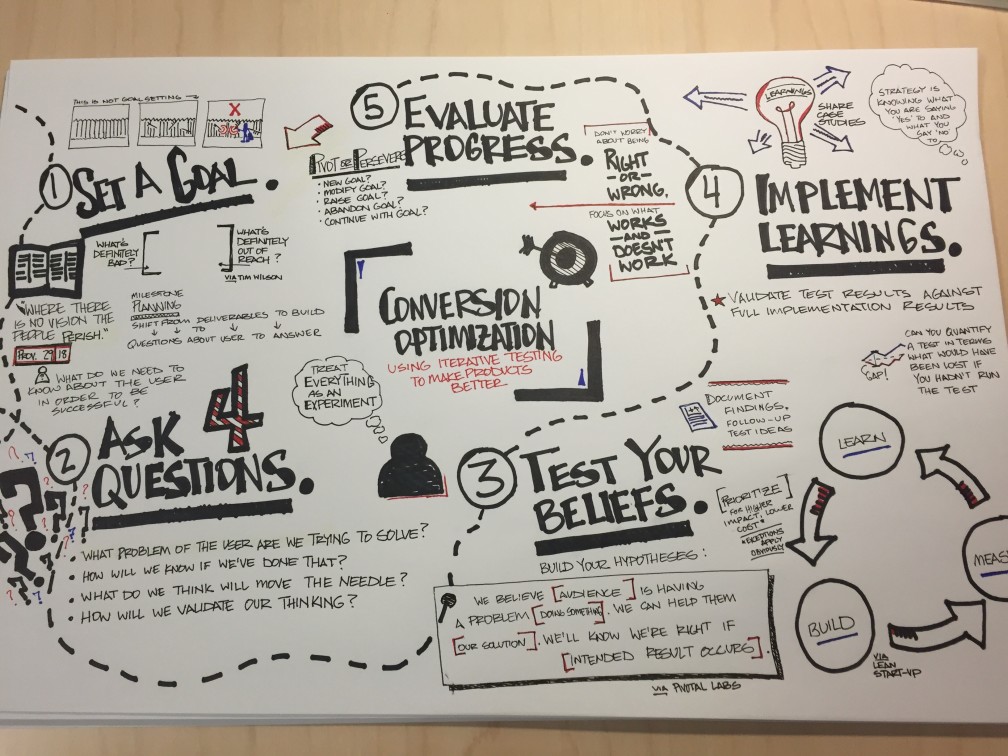 THIS IS NOT GOAL SETTING
X
1
SET A GOAL.
WHAT'S
DEFINITELY
BAD?
WHAT'S
DEFINITELY
OUT OF
REACH?
VIA TIM WILSON
"WHERE THERE
IS NO VISION THE
PEOPLE PERISH."
PROV. 29 18
MILESTONE
PLANNING
SHIFT FROM DELIVERABLES TO BUILD
TO
QUESTIONS ABOUT USER TO ANSWER
WHAT DO WE NEED TO
KNOW ABOUT THE USER
IN ORDER TO BE
SUCCESSFUL?
2
ASK 4
QUESTIONS.
• WHAT PROBLEM OF THE USER ARE WE TRYING TO SOLVE?
• HOW WILL WE KNOW IF WE'VE DONE THAT?
• WHAT DO WE THINK WILL MOVE THE NEEDLE?
• HOW WILL WE VALIDATE OUR THINKING?
CONVERSION
OPTIMIZATION
USING ITERATIVE TESTING
TO MAKE PRODUCTS
BETTER
TREAT
EVERYTHING
AS AN
EXPERIMENT
3
TEST YOUR
BELIEFS.
BUILD YOUR HYPOTHESES:
WE BELIEVE [AUDIENCE] IS HAVING
A PROBLEM [DOING SOMETHING]. WE CAN HELP THEM
[OUR SOLUTION]. WE'LL KNOW WE'RE RIGHT IF
[INTENDED RESULT OCCURS].
VIA PIVOTAL LABS
4
IMPLEMENT
LEARNINGS.
LEARNINGS
SHARE
CASE
STUDIES
STRATEGY IS
KNOWING WHAT
YOU ARE SAYING
'YES' TO AND
WHAT YOU
SAY 'NO'
TO
★ VALIDATE TEST RESULTS AGAINST
FULL IMPLEMENTATION RESULTS
GAP!
CAN YOU QUANTIFY
A TEST IN TERMS
WHAT WOULD HAVE
BEEN LOST IF
YOU HADN'T RUN
THE TEST
DOCUMENT
FINDINGS,
FOLLOW-UP
TEST IDEAS
[PRIORITIZE]
FOR HIGHER
IMPACT, LOWER
COST*
*EXCEPTIONS
APPLY
OBVIOUSLY
LEARN
BUILD
MEAS
VIA
LEAN
START-UP
5
EVALUATE
PROGRESS.
PIVOT OR PERSEVERE
• NEW GOAL?
• MODIFY GOAL?
• RAISE GOAL?
• ABANDON GOAL?
• CONTINUE WITH GOAL?
DON'T WORRY
ABOUT BEING
RIGHT
-OR-
WRONG.
FOCUS ON WHAT
WORKS
-AND-
DOESN'T
WORK